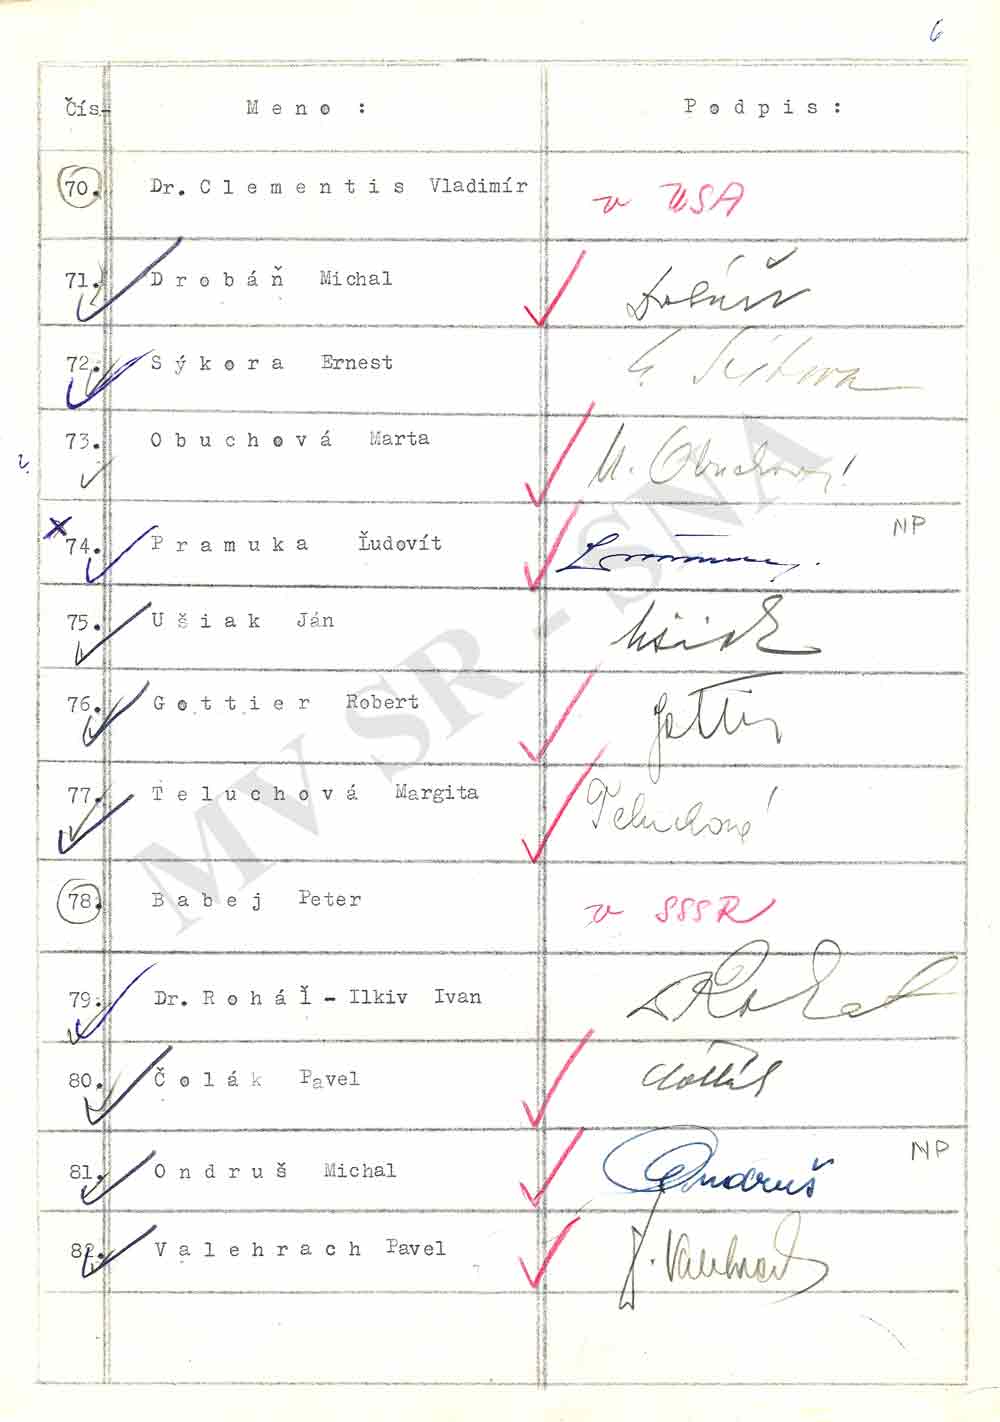 6
Čís. Meno: Podpis:
70. Dr. Clementis Vladimír v USA
71. Drobáň Michal
72. Sýkora Ernest E. Sýkora
73. Obuchová Marta M. Obuchová
74. Pramuka Ľudovít NP
75. Ušiak Ján Ušiak
76. Gottier Robert
77. Teluchová Margita Teluchová
78. Babej Peter v SSSR
79. Dr. Roháľ-Ilkiv Ivan
80. Čolák Pavel
81. Ondruš Michal Ondruš NP
82. Valehrach Pavel P. Valehrach
MV SR - SNA